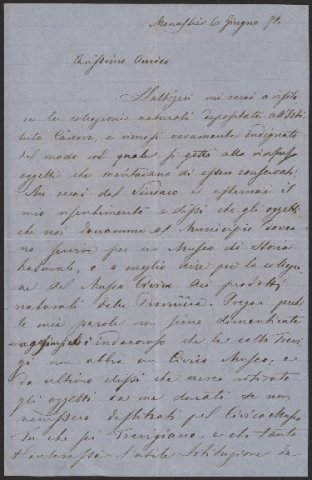 Monastier 6 Giugno 71.
Carissimo Amico
Stattizzi mi recai a visita
re le collezioni naturali depositate all'Isti
tuto Cànova, e rimasi veramente indignato
del modo col quale si gettò alla rinfusa
oggetti che meritavano di essere conservati.
Mi recai dal Sindaco e esternai il
mio risentimento e dissi che gli oggetti
che noi donammo al Municipio dove
no servire per un Museo di Storia
Naturale, o a meglio dire per la collezio
ne del Museo Civico dei prodotti
naturali della Provincia. Pregai perché
le mie parole non sieno dimenticate
e aggiunsi indecoroso che la colta Trevi
gi non abbia un Civico Museo, e
da ultimo dissi che avrei ritirato
gli oggetti da me donati se non
venissero destinati pel Civico Museo
Tu che sei Trevigiano, e che tanto
t'interessi l'utile Istituzione da